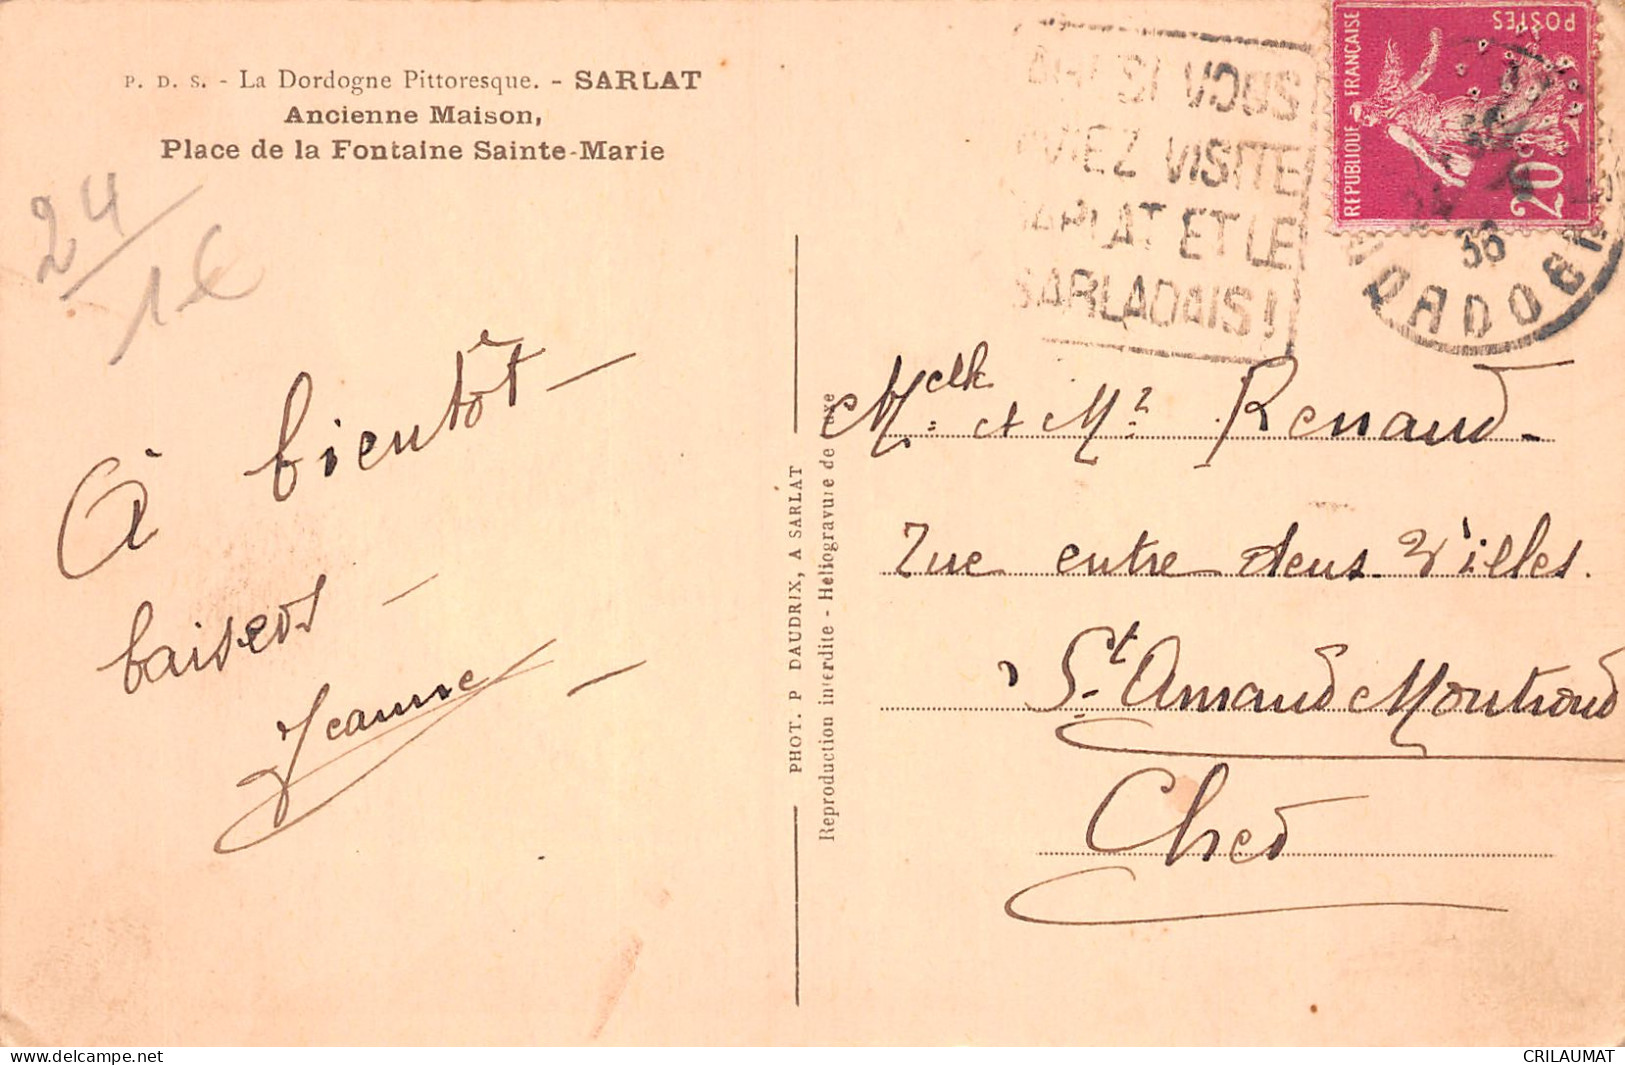 P. D. S. - La Dordogne Pittoresque. - SARLAT
Ancienne Maison,
Place de la Fontaine Sainte-Marie
24
1€
À bientôt -
baisers -
Jeanne -
PHOT. P DAUDRIX, A SARLAT
Reproduction interdite - Heliogravure de
SI VOUS
VISITE
SARLAT ET LE
SARLADAIS!
REPUBLIQUE FRANÇAISE
POSTES
20c
36
Melle et Mr Renaud -
rue entre deux villes.
St Amand Montrond
Cher
www.delcampe.net
CRILAUMAT